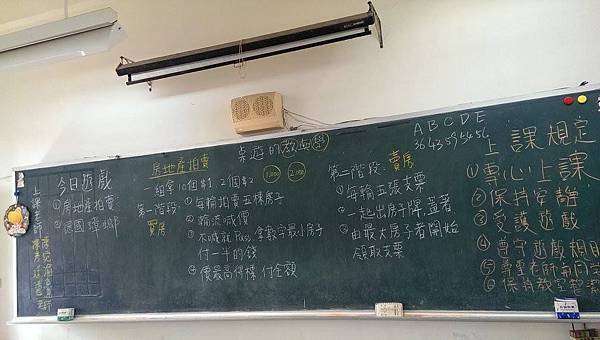 桌遊的教與學
上課老師
今日遊戲
①房地產拍賣
②德國蟑螂
房地產拍賣
一組拿10個$1 2個$2
1,000 2,000
第一階段:
買房
①每輪拍賣五棟房子
②輪流喊價
③不喊就Pass,拿數字最小房子
付一半的錢
④價最高得標 付全額
第二階段:賣房
①每輪五張支票
②一起出房子牌,蓋著
③由最大房子者開始
領取支票
A B C D E
36 43 59 54 56
上課規定
①專心上課
②保持安靜
③愛護遊戲
④尊守遊戲規則
⑤尊重老師和同學
⑥保持教室整潔